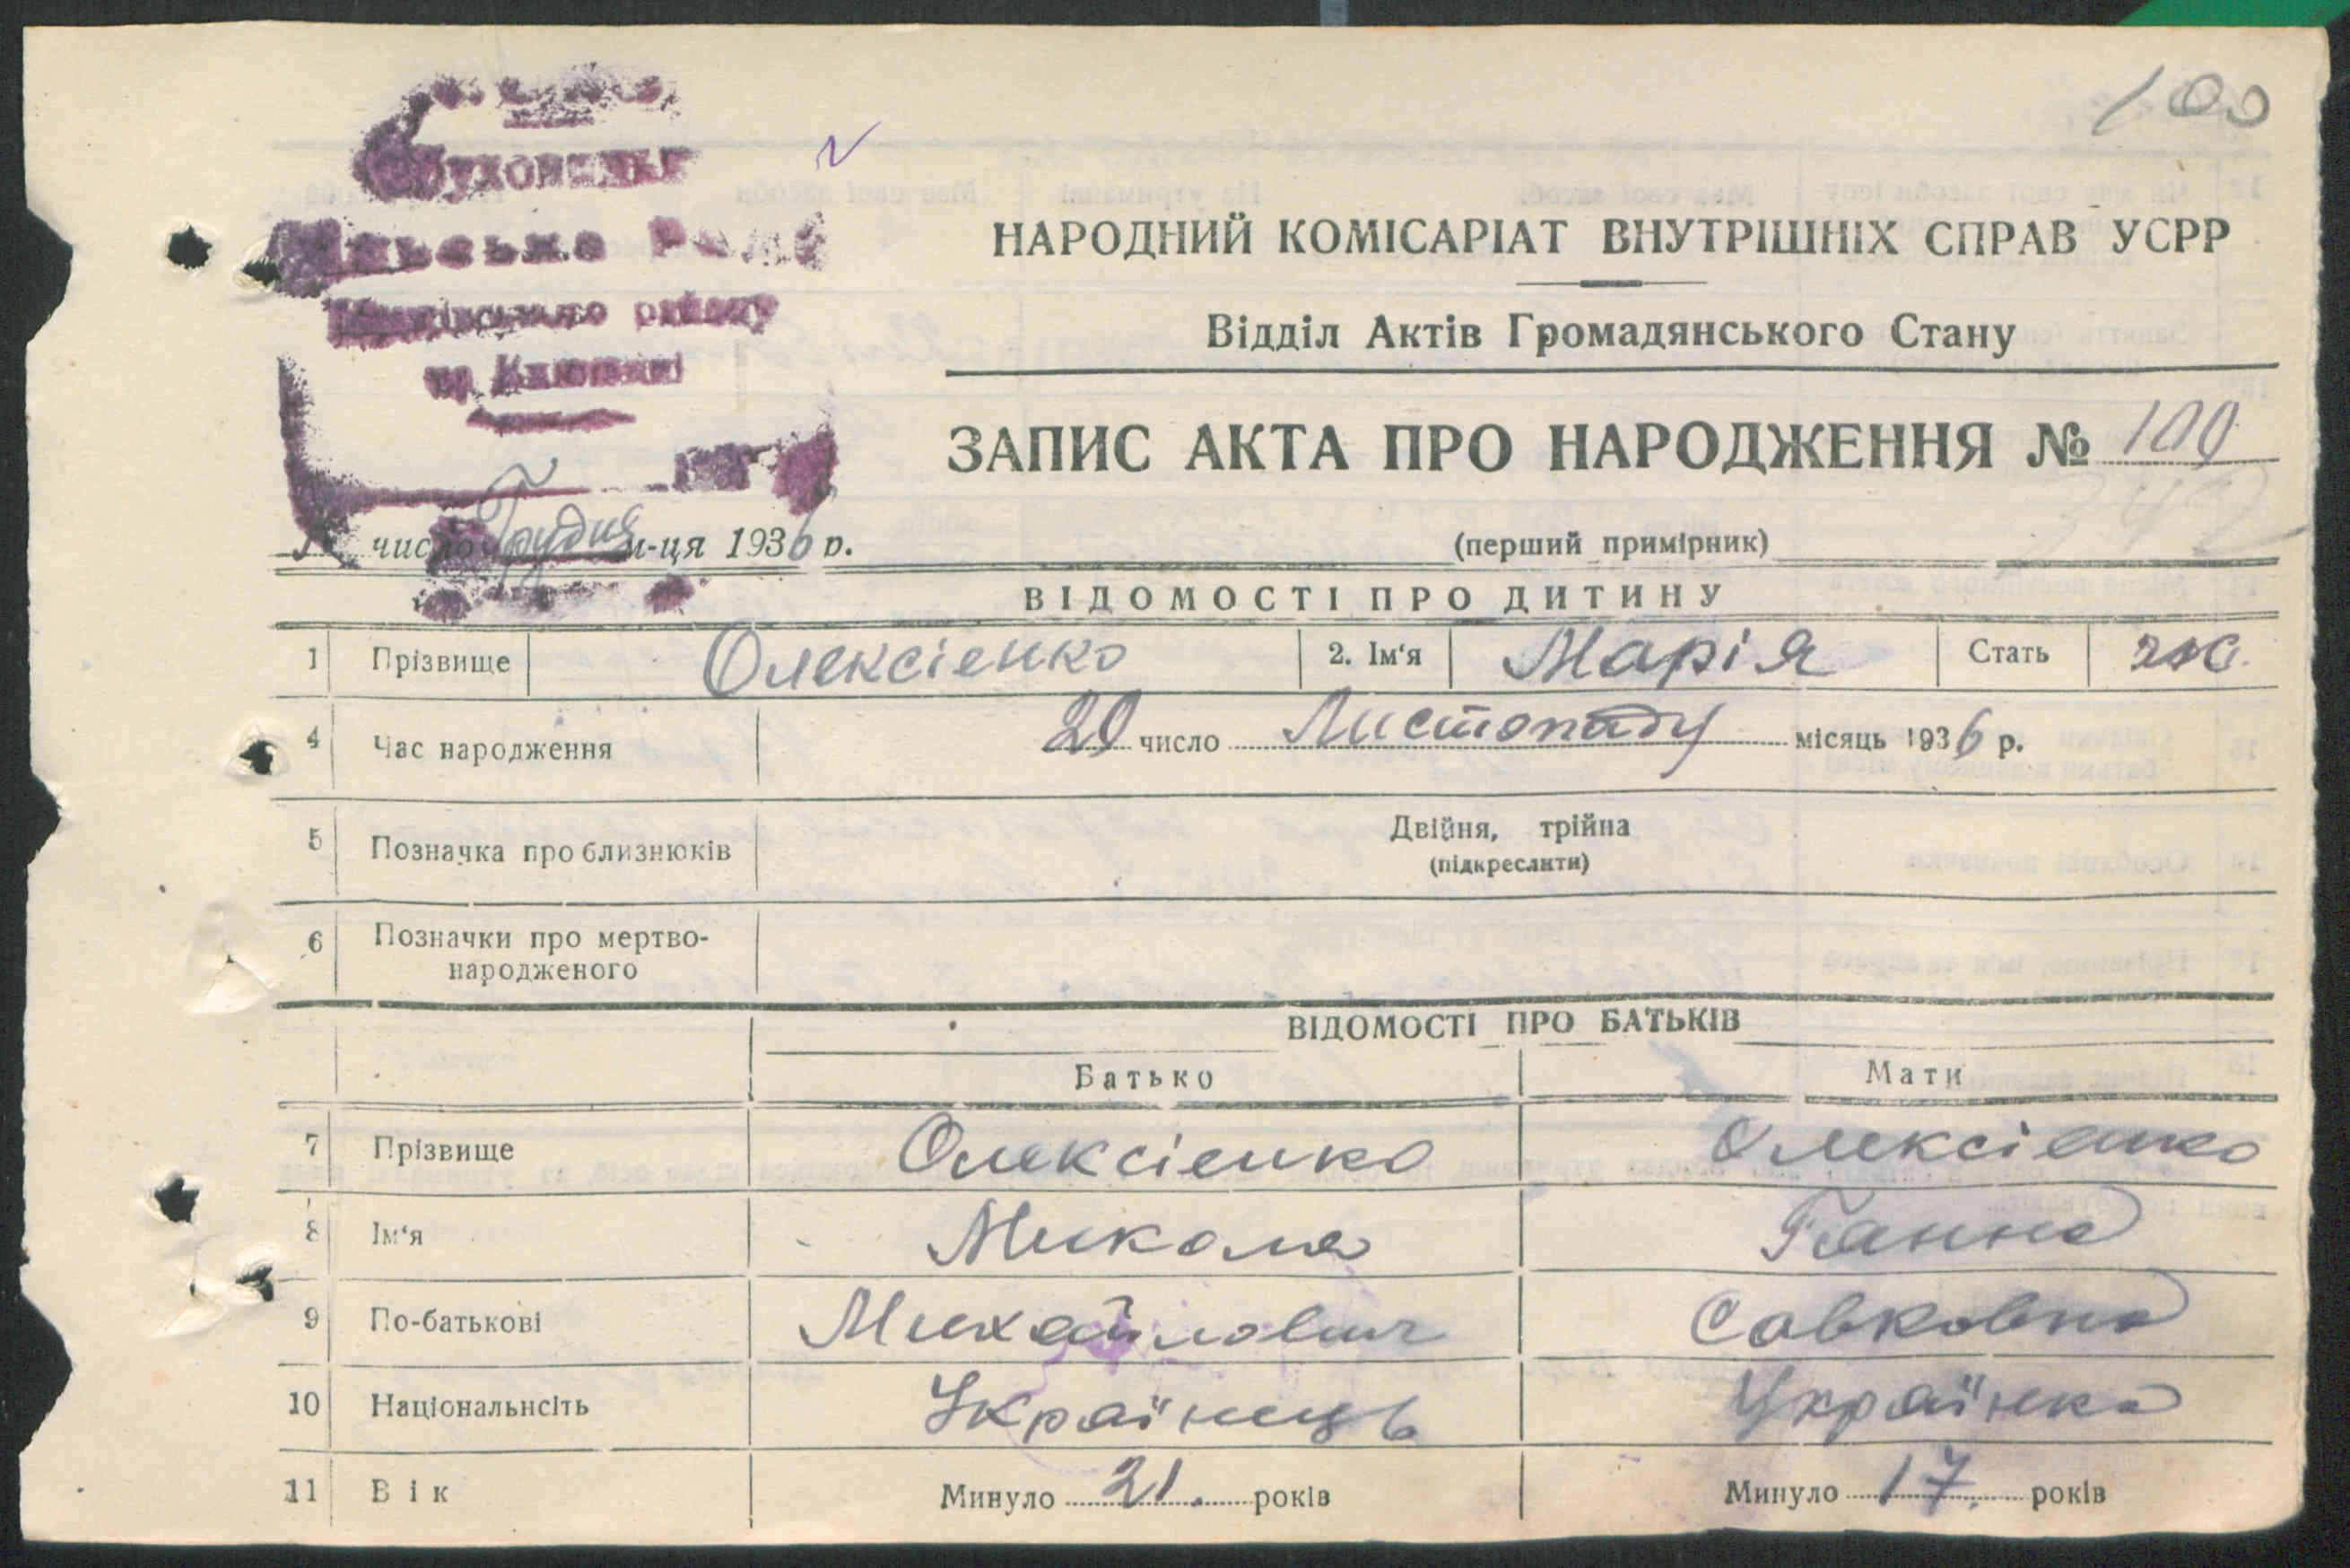 100
НАРОДНИЙ КОМІСАРІАТ ВНУТРІШНІХ СПРАВ УСРР
Відділ Актів Громадянського Стану
ЗАПИС АКТА ПРО НАРОДЖЕННЯ № 100
342
число Грудня м-ця 1936 р.
(перший примірник)
ВІДОМОСТІ ПРО ДИТИНУ
1 Прізвище Олексіенко 2. Ім‘я Марія Стать жс.
4 Час народження 20 число Листопаду місяць 1936 р.
5 Позначка про близнюків Двійня, трійна
(підкреслити)
6 Позначки про мертво-
народженого
ВІДОМОСТІ ПРО БАТЬКІВ
Батько Мати
7 Прізвище Олексіенко Олексіенко
8 Ім‘я Микола Ганна
9 По-батькові Михайлович Савковна
10 Національнсіть Українець Українка
11 Вік Минуло 21. років Минуло 17. років